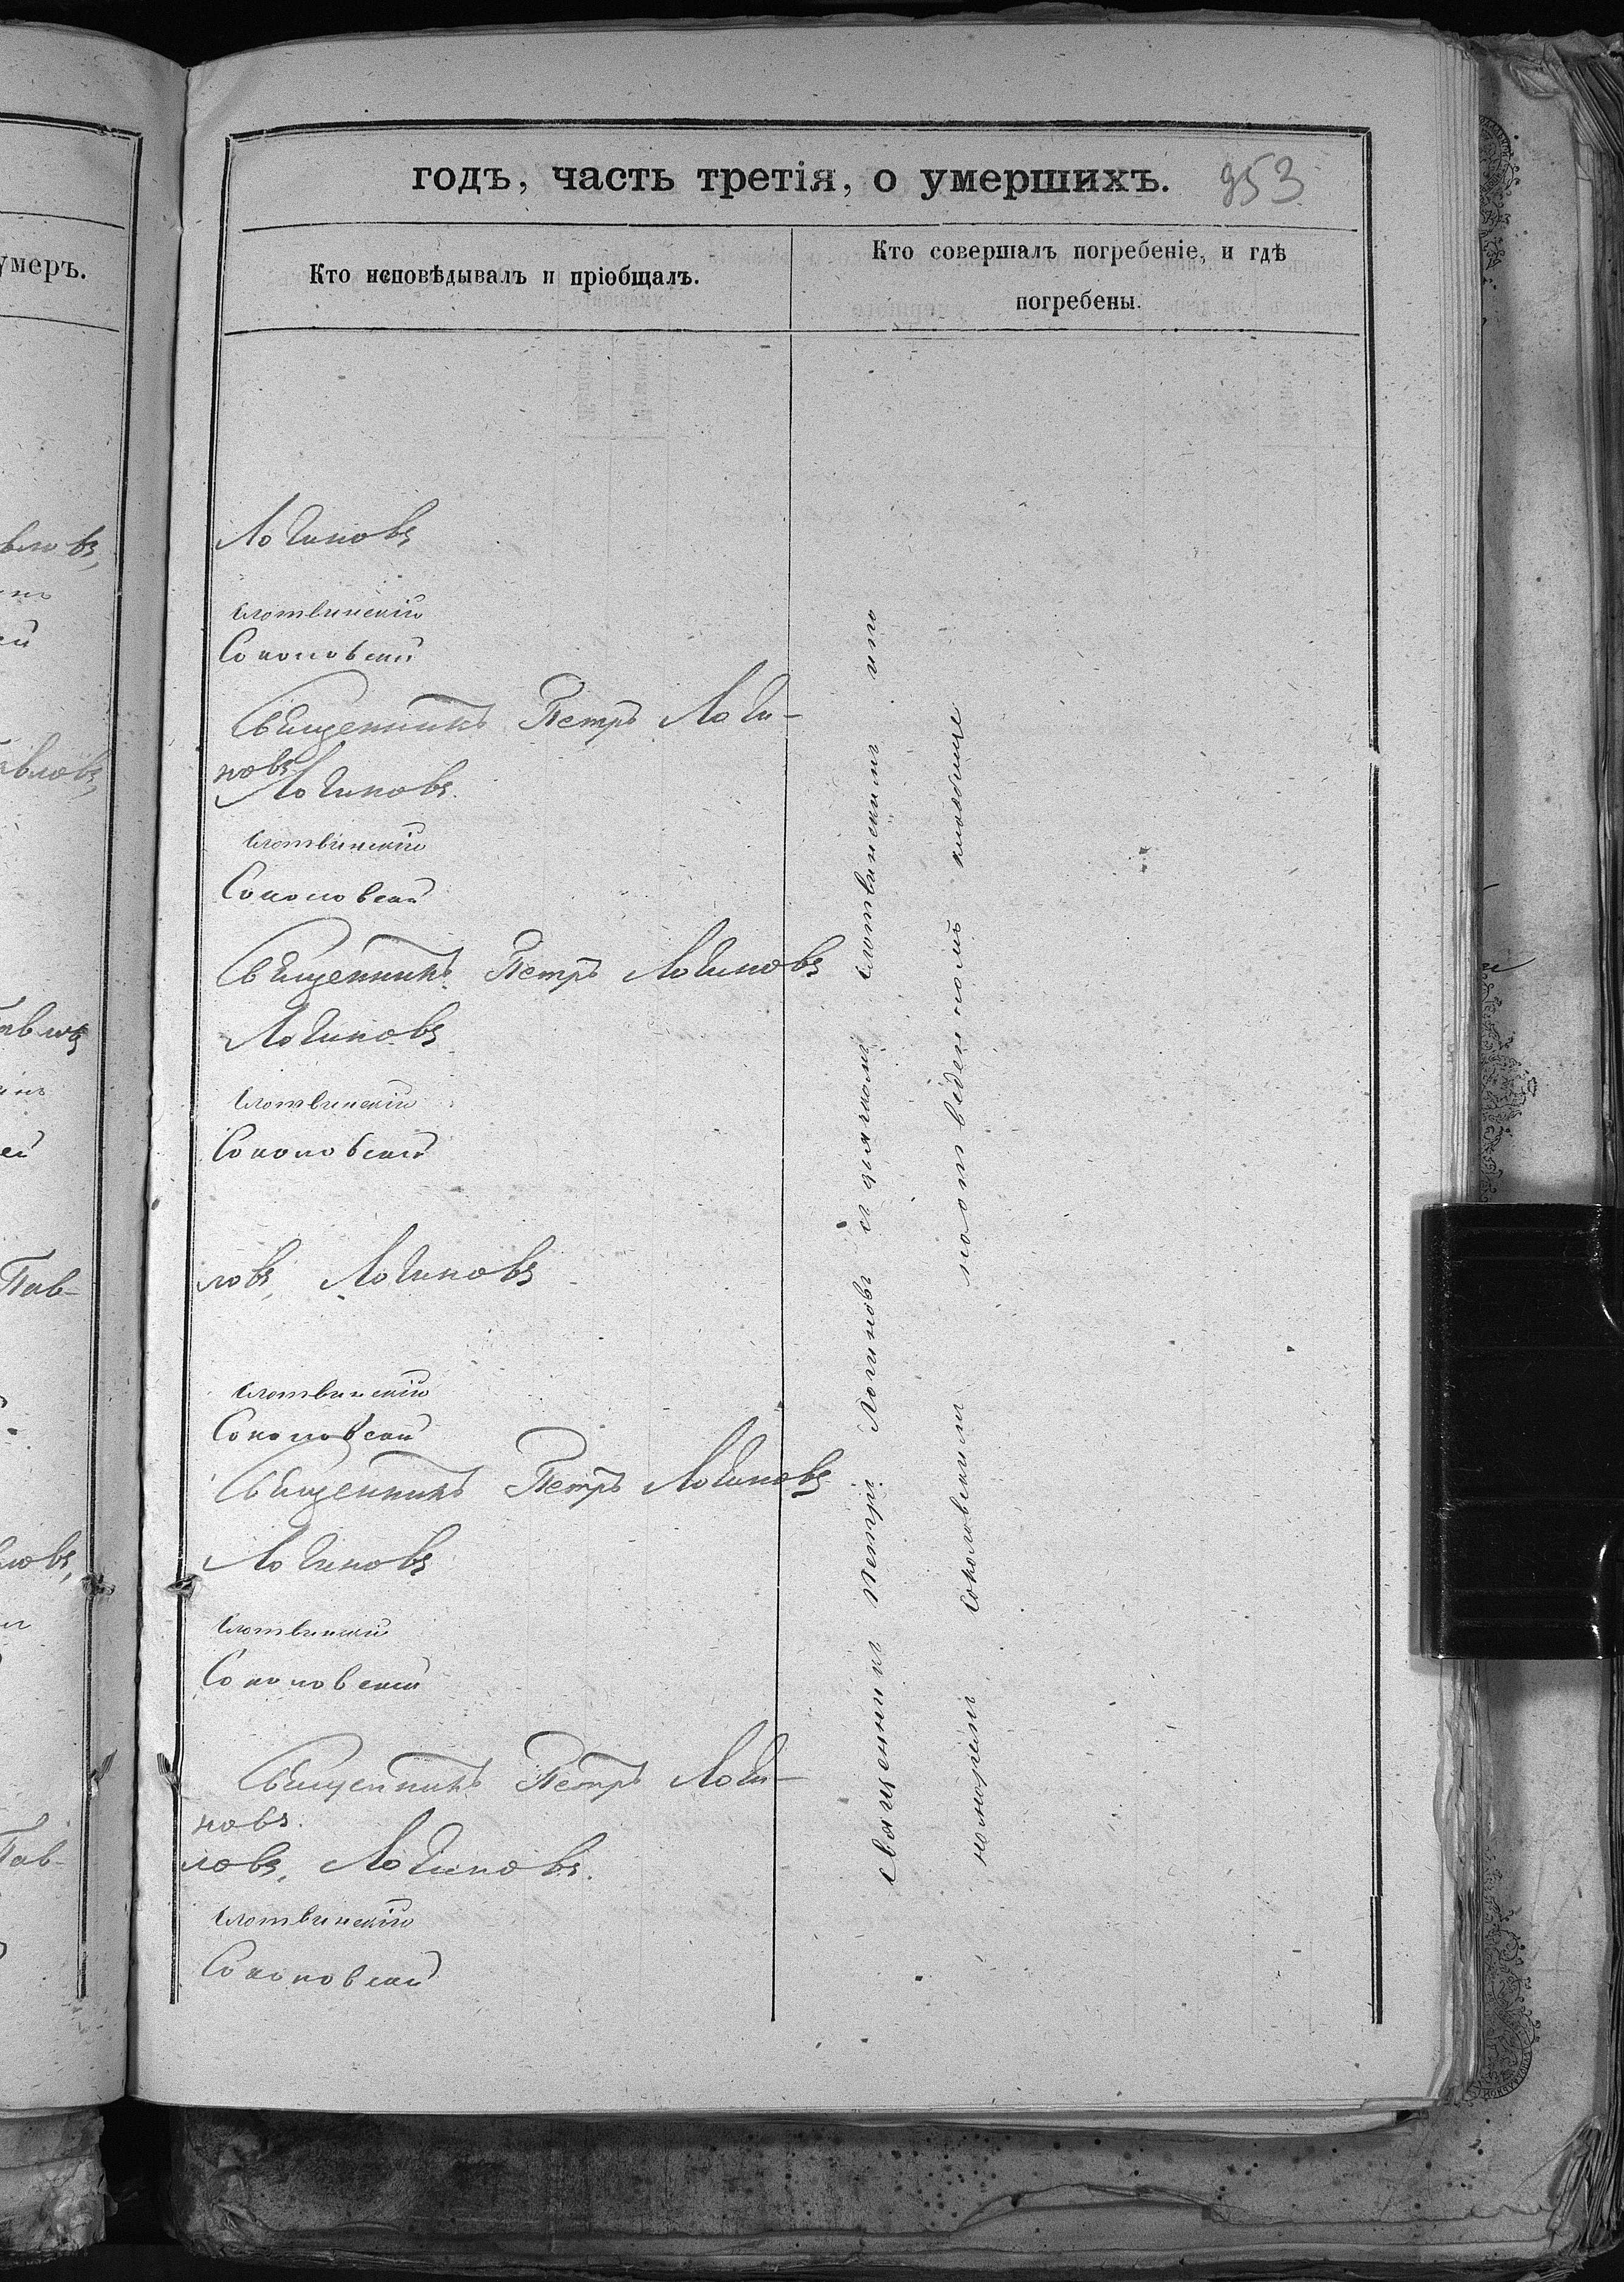 умеръ.
годъ, часть третія, о умершихъ. 953
Кто исповѣдывалъ и пріобщалъ.
Кто совершалъ погребеніе, и гдѣ
погребены.
Логиновъ
Слотвинскій
Соколовскій
Священникъ Петръ Логи-
новъ
Логиновъ
Слотвинскій
Соколовскій
Священникъ Петръ Логиновъ
Логиновъ
Слотвинскій
Соколовскій
Пав-
ловъ, Логиновъ
Слотвинскій
Соколовскій
Священникъ Петръ Логиновъ
Логиновъ
Слотвинскій
Соколовскій
Священникъ Петръ Логи-
новъ.
Пав-
ловъ, Логиновъ.
Слотвинскій
Соколовскій
Священникъ Петръ Логиновъ съ дьячкомъ Слотвинскимъ и по
номаремъ Соколовскимъ на отведенномъ кладбище